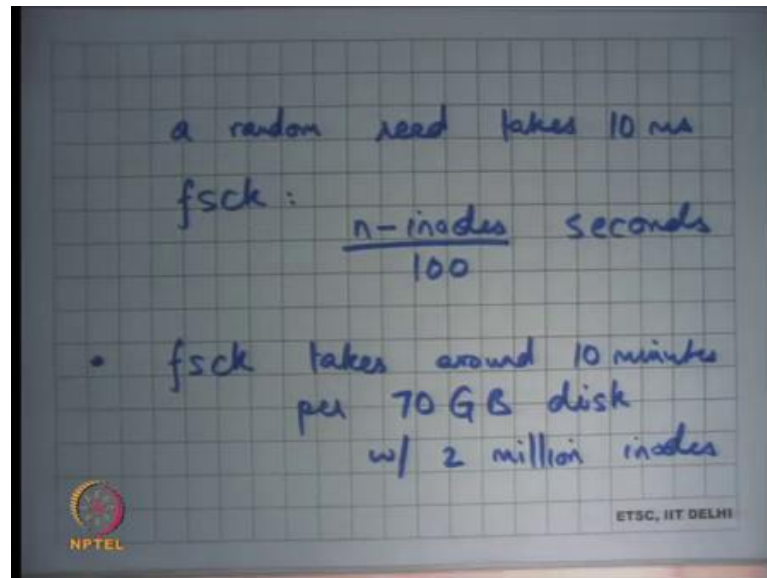 a random read takes 10 ms
fsck :
n-inodes seconds
100
• fsck takes around 10 minutes
per 70 GB disk
w/ 2 million inodes
NPTEL
ETSC, IIT DELHI